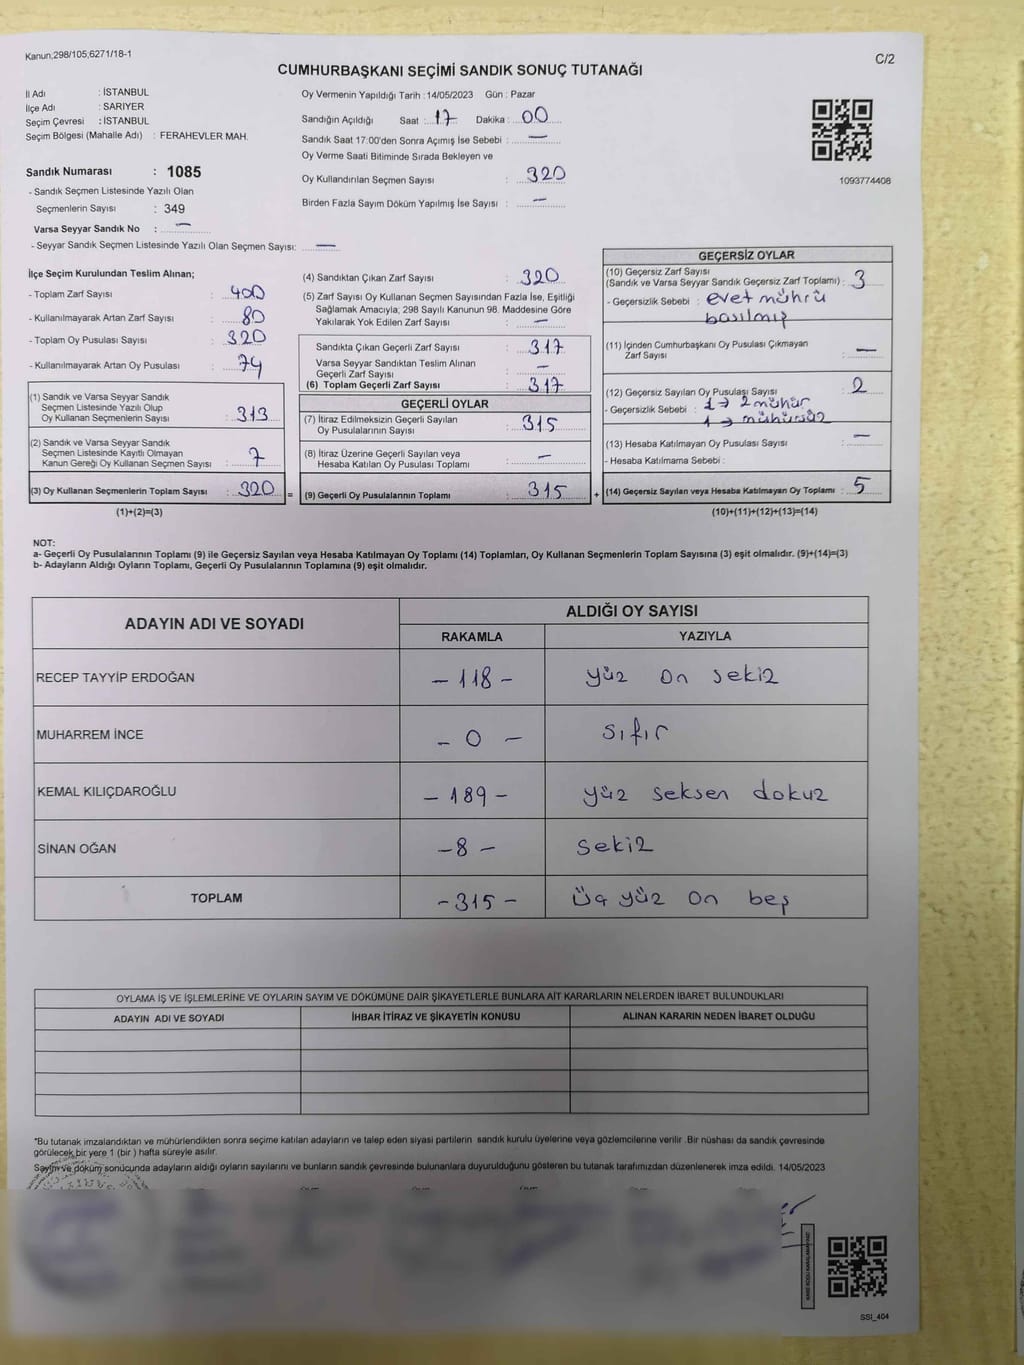 Kanun,298/105,6271/18-1
C/2
CUMHURBAŞKANI SEÇİMİ SANDIK SONUÇ TUTANAĞI
İl Adı : İSTANBUL
İlçe Adı : SARIYER
Seçim Çevresi : İSTANBUL
Seçim Bölgesi (Mahalle Adı) : FERAHEVLER MAH.
Sandık Numarası : 1085
- Sandık Seçmen Listesinde Yazılı Olan
Seçmenlerin Sayısı : 349
Varsa Seyyar Sandık No : —
- Seyyar Sandık Seçmen Listesinde Yazılı Olan Seçmen Sayısı: —
Oy Vermenin Yapıldığı Tarih : 14/05/2023 Gün : Pazar
Sandığın Açıldığı Saat : 17 Dakika : 00
Sandık Saat 17:00'den Sonra Açımış İse Sebebi : —
Oy Verme Saati Bitiminde Sırada Bekleyen ve
Oy Kullandırılan Seçmen Sayısı : 320
Birden Fazla Sayım Döküm Yapılmış İse Sayısı : —
1093774408
İlçe Seçim Kurulundan Teslim Alınan;
- Toplam Zarf Sayısı : 400
- Kullanılmayarak Artan Zarf Sayısı : 80
- Toplam Oy Pusulası Sayısı : 320
- Kullanılmayarak Artan Oy Pusulası : 74
(1) Sandık ve Varsa Seyyar Sandık
Seçmen Listesinde Yazılı Olup
Oy Kullanan Seçmenlerin Sayısı : 313
(2) Sandık ve Varsa Seyyar Sandık
Seçmen Listesinde Kayıtlı Olmayan
Kanun Gereği Oy Kullanan Seçmen Sayısı : 7
(3) Oy Kullanan Seçmenlerin Toplam Sayısı : 320 =
(1)+(2)=(3)
(4) Sandıktan Çıkan Zarf Sayısı : 320
(5) Zarf Sayısı Oy Kullanan Seçmen Sayısından Fazla İse, Eşitliği
Sağlamak Amacıyla; 298 Sayılı Kanunun 98. Maddesine Göre
Yakılarak Yok Edilen Zarf Sayısı : —
Sandıkta Çıkan Geçerli Zarf Sayısı : 317
Varsa Seyyar Sandıktan Teslim Alınan
Geçerli Zarf Sayısı : —
(6) Toplam Geçerli Zarf Sayısı : 317
GEÇERLİ OYLAR
(7) İtiraz Edilmeksizin Geçerli Sayılan
Oy Pusulalarının Sayısı : 315
(8) İtiraz Üzerine Geçerli Sayılan veya
Hesaba Katılan Oy Pusulası Toplamı : —
(9) Geçerli Oy Pusulalarının Toplamı : 315 +
GEÇERSİZ OYLAR
(10) Geçersiz Zarf Sayısı
(Sandık ve Varsa Seyyar Sandık Geçersiz Zarf Toplamı) : 3
- Geçersizlik Sebebi : evet mührü
basılmış
(11) İçinden Cumhurbaşkanı Oy Pusulası Çıkmayan
Zarf Sayısı : —
(12) Geçersiz Sayılan Oy Pusulası Sayısı : 2
- Geçersizlik Sebebi : 1 → 2 mühür
1 → mühürsüz
(13) Hesaba Katılmayan Oy Pusulası Sayısı : —
- Hesaba Katılmama Sebebi :
(14) Geçersiz Sayılan veya Hesaba Katılmayan Oy Toplamı : 5
(10)+(11)+(12)+(13)=(14)
NOT:
a- Geçerli Oy Pusulalarının Toplamı (9) ile Geçersiz Sayılan veya Hesaba Katılmayan Oy Toplamı (14) Toplamları, Oy Kullanan Seçmenlerin Toplam Sayısına (3) eşit olmalıdır. (9)+(14)=(3)
b- Adayların Aldığı Oyların Toplamı, Geçerli Oy Pusulalarının Toplamına (9) eşit olmalıdır.
ADAYIN ADI VE SOYADI ALDIĞI OY SAYISI
RAKAMLA YAZIYLA
RECEP TAYYİP ERDOĞAN - 118 - yüz on sekiz
MUHARREM İNCE - 0 - sıfır
KEMAL KILIÇDAROĞLU - 189 - yüz seksen dokuz
SİNAN OĞAN - 8 - sekiz
TOPLAM - 315 - üç yüz on beş
OYLAMA İŞ VE İŞLEMLERİNE VE OYLARIN SAYIM VE DÖKÜMÜNE DAİR ŞİKAYETLERLE BUNLARA AİT KARARLARIN NELERDEN İBARET BULUNDUKLARI
ADAYIN ADI VE SOYADI İHBAR İTİRAZ VE ŞİKAYETİN KONUSU ALINAN KARARIN NEDEN İBARET OLDUĞU
*Bu tutanak imzalandıktan ve mühürlendikten sonra seçime katılan adayların ve talep eden siyasi partilerin sandık kurulu üyelerine veya gözlemcilerine verilir .Bir nüshası da sandık çevresinde
görülecek bir yere 1 (bir ) hafta süreyle asılır.
Sayım ve döküm sonucunda adayların aldığı oyların sayılarını ve bunların sandık çevresinde bulunanlara duyurulduğunu gösteren bu tutanak tarafımızdan düzenlenerek imza edildi. 14/05/2023
SSİ_404